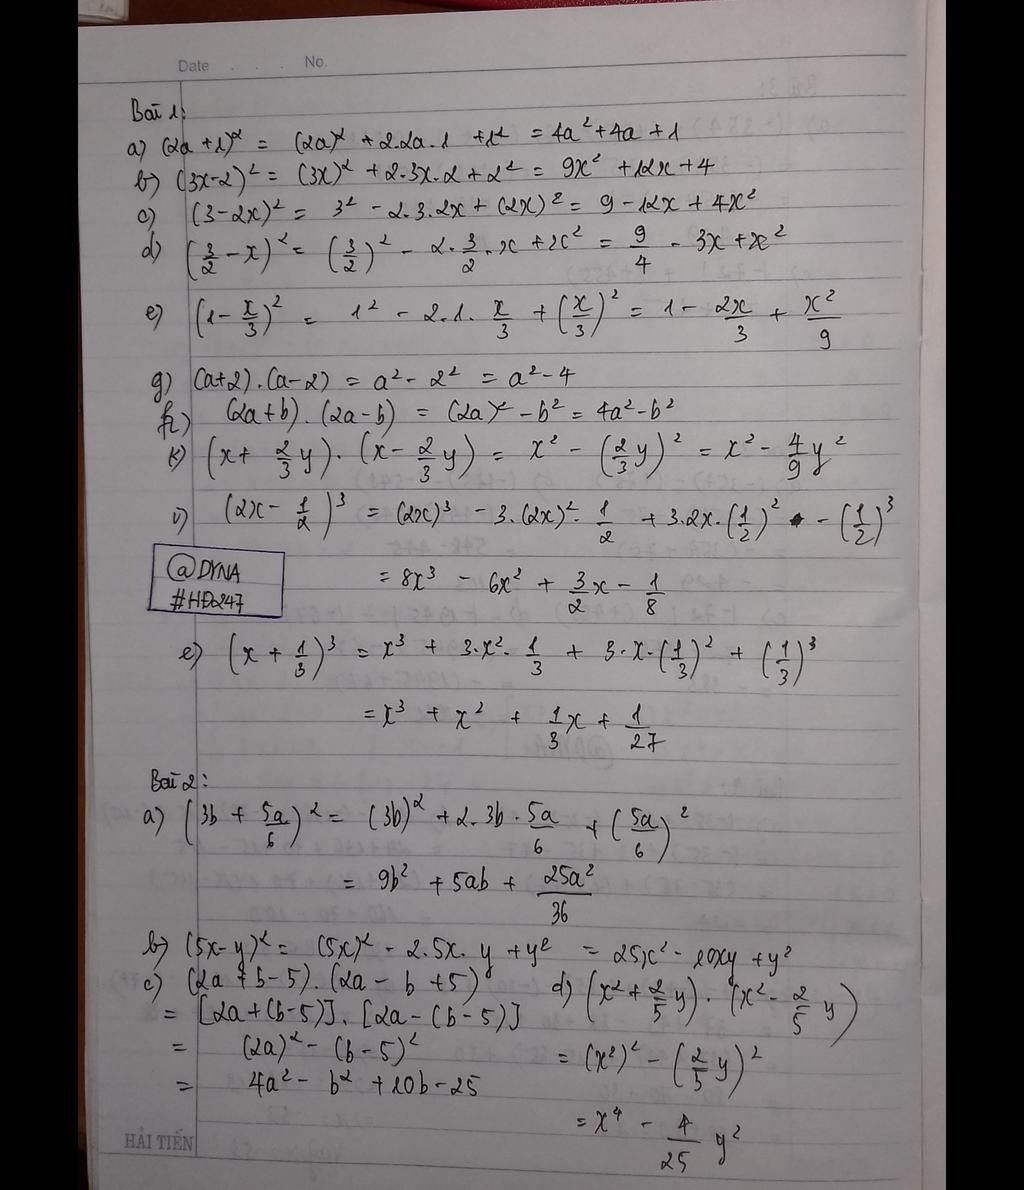 Date . . . No.
Bài 1:
a) (2a+1)² = (2a)² + 2.2a.1 + 1² = 4a² + 4a + 1
b) (3x-2)² = (3x)² + 2.3x.2 + 2² = 9x² + 12x + 4
c) (3-2x)² = 3² - 2.3.2x + (2x)² = 9 - 12x + 4x²
d) (3/2 - x)² = (3/2)² - 2.3/2.x + x² = 9/4 - 3x + x²
e) (1 - x/3)² = 1² - 2.1.x/3 + (x/3)² = 1 - 2x/3 + x²/9
g) (a+2).(a-2) = a² - 2² = a² - 4
h) (2a+b).(2a-b) = (2a)² - b² = 4a² - b²
k) (x + 2/3y).(x - 2/3y) = x² - (2/3y)² = x² - 4/9y²
i) (2x - 1/2)³ = (2x)³ - 3.(2x)².1/2 + 3.2x.(1/2)² - (1/2)³
= 8x³ - 6x² + 3/2x - 1/8
@DYNA
#HĐ247
e) (x + 1/3)³ = x³ + 3.x².1/3 + 3.x.(1/3)² + (1/3)³
= x³ + x² + 1/3x + 1/27
Bài 2:
a) (3b + 5a/6)² = (3b)² + 2.3b.5a/6 + (5a/6)²
= 9b² + 5ab + 25a²/36
b) (5x-y)² = (5x)² - 2.5x.y + y² = 25x² - 10xy + y²
c) (2a+b-5).(2a-b+5)
= [2a+(b-5)].[2a-(b-5)]
= (2a)² - (b-5)²
= 4a² - b² + 10b - 25
d) (x² + 2/5y).(x² - 2/5y)
= (x²)² - (2/5y)²
= x⁴ - 4/25y²
HẢI TIẾN